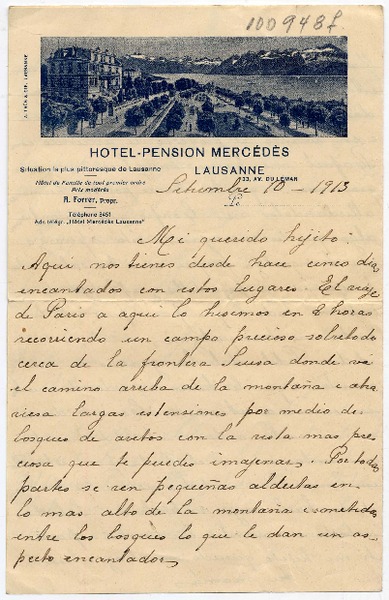 100948f
HOTEL-PENSION MERCÉDÈS
LAUSANNE
23, AV. DU LÉMAN
Situation la plus pittoresque de Lausanne
Hôtel de Famille de tout premier ordre
Prix modérés
R. Forrer, Propr.
Téléphone 3451
Adr. télégr. „Hôtel Mercédès Lausanne"
Setiembre 10 - 1913
Le
Mi querido hijito:
Aqui nos tienes desde hace cinco dias
encantados con estos lugares. El viaje
de Paris a aqui lo hisimos en 8 horas
recorriendo un campo precioso sobretodo
cerca de la frontera Suisa donde va
el camino arriba de la montaña i atra
viesa largas estensiones por medio de
bosques de avetos con la vista mas pre
ciosa que te puedes imajenar. Por todas
partes se ven pequeñas aldeitas en
lo mas alto de la montaña i metidas
entre los bosques lo que le dan un as-
pecto encantador.